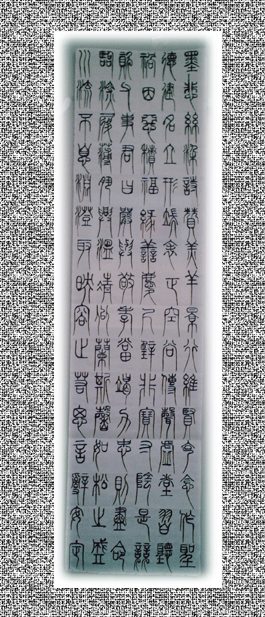 墨悲絲染詩贊羔羊景行維賢克念作聖
德建名立形端表正空谷傳聲虛堂習聽
禍因惡積福緣善慶尺璧非寶寸陰是競
資父事君曰嚴與敬孝當竭力忠則盡命
臨深履薄夙興溫凊似蘭斯馨如松之盛
川流不息淵澄取映容止若思言辭安定